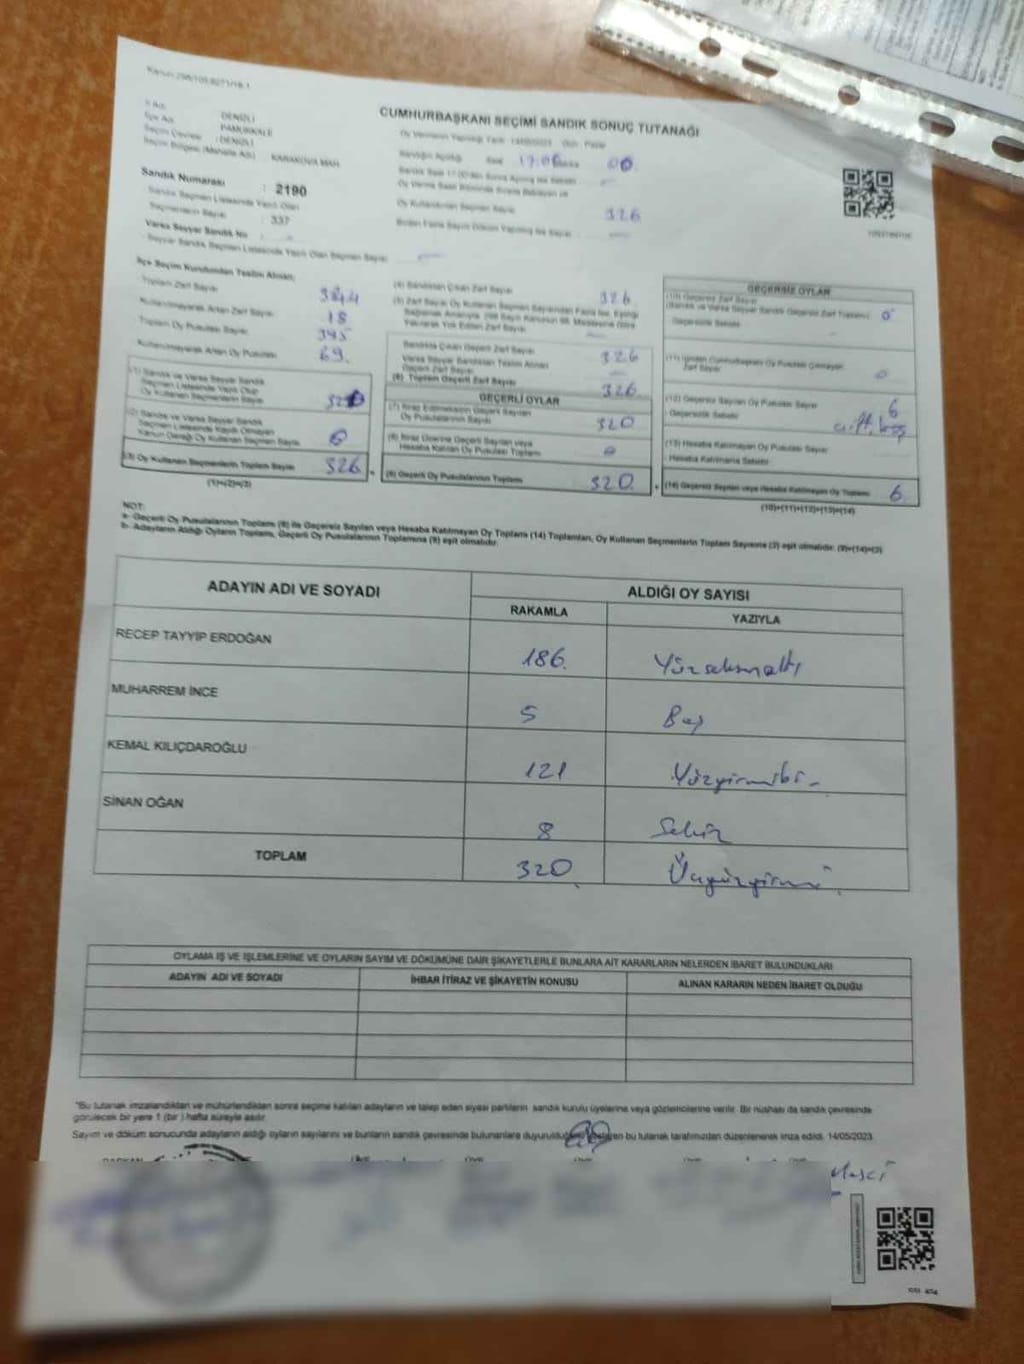 Kanun:298/105,6271/18.1
CUMHURBAŞKANI SEÇİMİ SANDIK SONUÇ TUTANAĞI
İl Adı : DENİZLİ
İlçe Adı : PAMUKKALE
Seçim Çevresi : DENİZLİ
Seçim Bölgesi (Mahalle Adı) : KARAKOVA MAH.
Sandık Numarası : 2190
Sandık Seçmen Listesinde Yazılı Olan
Seçmenlerin Sayısı : 337
Varsa Seyyar Sandık No :
Seyyar Sandık Seçmen Listesinde Yazılı Olan Seçmen Sayısı
Oy Vermenin Yapıldığı Tarih 14/05/2023 Gün Pazar
Sandığın Açıldığı Saat 17:00 00
Oy Kullandırılan Seçmen Sayısı 326
Birden Fazla Sayım Döküm Yapılmış İse Sayısı
İlçe Seçim Kurulundan Teslim Alınan;
Toplam Zarf Sayısı 344
Kullanılmayarak Artan Zarf Sayısı 18
Toplam Oy Pusulası Sayısı 395
Kullanılmayarak Artan Oy Pusulası 69.
(1) Sandık ve Varsa Seyyar Sandık
Seçmen Listesinde Yazılı Olup
Oy Kullanan Seçmenlerin Sayısı
(2) Sandık ve Varsa Seyyar Sandık
Seçmen Listesinde Kayıtlı Olmayan
Kanun Gereği Oy Kullanan Seçmenlerin Sayısı 0
(3) Oy Kullanan Seçmenlerin Toplam Sayısı 326
(1)+(2)=(3)
(4) Sandıktan Çıkan Zarf Sayısı 326
(5) Zarf Sayısı Oy Kullanan Seçmen Sayısından Fazla İse, Eşitliği
Sağlamak Amacıyla (298 Sayılı Kanunun 98. Maddesine Göre
Yakılarak Yok Edilen Zarf Sayısı
Sandıkta Çıkan Geçerli Zarf Sayısı 326
Varsa Seyyar Sandıktan Teslim Alınan
Geçerli Zarf Sayısı
(6) Toplam Geçerli Zarf Sayısı 326
GEÇERLİ OYLAR
(7) İtiraz Edilmeksizin Geçerli Sayılan
Oy Pusulalarının Sayısı 320
(8) İtiraz Üzerine Geçerli Sayılan veya
Hesaba Katılan Oy Pusulası Toplamı 0
(9) Geçerli Oy Pusulalarının Toplamı 320
GEÇERSİZ OYLAR
(10) Geçersiz Zarf Sayısı
(Sandık ve Varsa Seyyar Sandık Geçersiz Zarf Toplamı) 0
Geçersizlik Sebebi
(11) İçinden Cumhurbaşkanı Oy Pusulası Çıkmayan
Zarf Sayısı 0
(12) Geçersiz Sayılan Oy Pusulası Sayısı 6
Geçersizlik Sebebi çift, boş
(13) Hesaba Katılmayan Oy Pusulası Sayısı
Hesaba Katılmama Sebebi
(14) Geçersiz Sayılan veya Hesaba Katılmayan Oy Toplamı 6
(10)+(11)+(12)+(13)=(14)
NOT:
a- Geçerli Oy Pusulalarının Toplamı (9) ile Geçersiz Sayılan veya Hesaba Katılmayan Oy Toplamı (14) Toplamları, Oy Kullanan Seçmenlerin Toplam Sayısına (3) eşit olmalıdır. (9)+(14)=(3)
b- Adayların Aldığı Oyların Toplamı, Geçerli Oy Pusulalarının Toplamına (9) eşit olmalıdır.
ADAYIN ADI VE SOYADI
ALDIĞI OY SAYISI
RAKAMLA YAZIYLA
RECEP TAYYİP ERDOĞAN 186 Yüzseksenaltı
MUHARREM İNCE 5 Beş
KEMAL KILIÇDAROĞLU 121 Yüzyirmibir
SİNAN OĞAN 8 Sekiz
TOPLAM 320 Üçyüzyirmi
OYLAMA İŞ VE İŞLEMLERİNE VE OYLARIN SAYIM VE DÖKÜMÜNE DAİR ŞİKAYETLERLE BUNLARA AİT KARARLARIN NELERDEN İBARET BULUNDUKLARI
ADAYIN ADI VE SOYADI İHBAR İTİRAZ VE ŞİKAYETİN KONUSU ALINAN KARARIN NEDEN İBARET OLDUĞU
"Bu tutanak imzalandıktan ve mühürlendikten sonra seçime katılan adayların ve talep eden siyasi partilerin sandık kurulu üyelerine veya gözlemcilerine verilir. Bir nüshası da sandık çevresinde
görülecek bir yere 1 (bir ) hafta süreyle asılır.
Sayım ve döküm sonucunda adayların aldığı oyların sayılarını ve bunların sandık çevresinde bulunanlara duyurulduğunu bu tutanak tarafımızdan düzenlenerek imza edildi. 14/05/2023